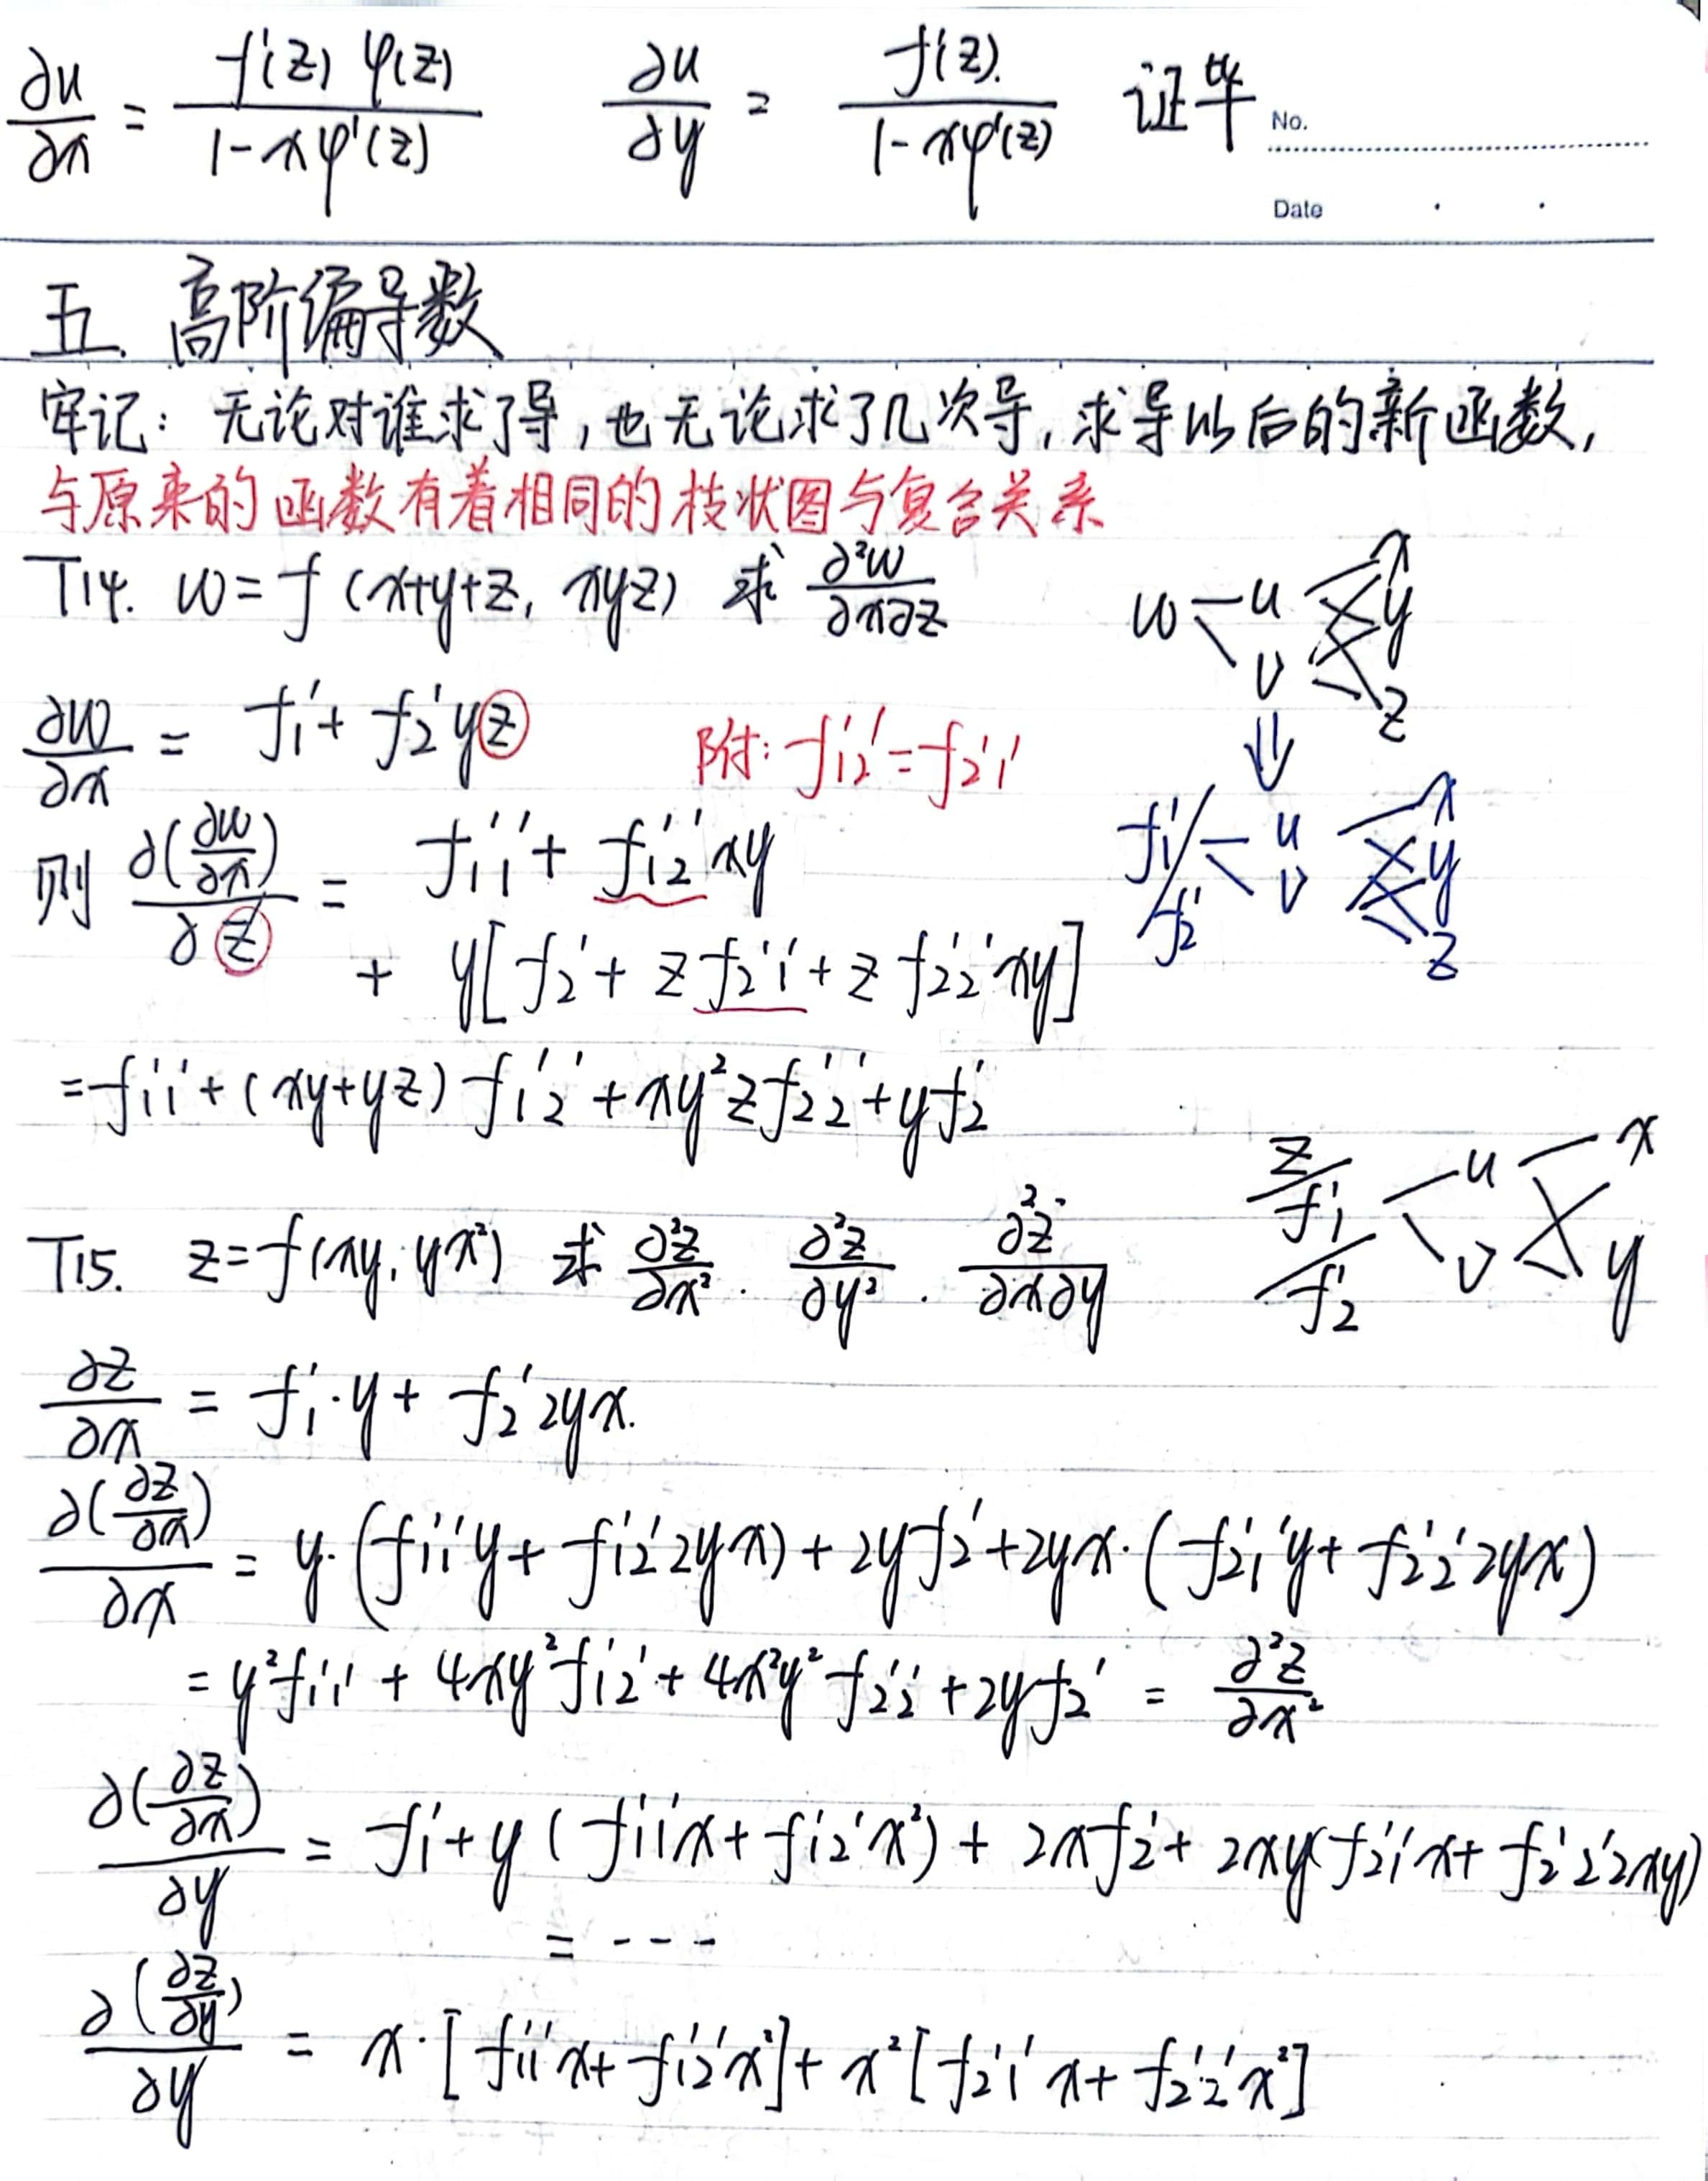 ∂u/∂x = f'(z) φ(z) / 1-xφ'(z)   ∂u/∂y = f'(z). / 1-xφ'(z)   证毕
No.
Date
五. 高阶偏导数
牢记：无论对谁求了导，也无论求了几次导，求导以后的新函数，
与原来的函数有着相同的枝状图与复合关系
T14. w=f (x+y+z, xyz) 求 ∂²w/∂x∂z
w u v x y z
∂w/∂x = f₁' + f₂'yz   附：f₁₂'' = f₂₁''
⇓
f₁' f₂' u v x y z
则 ∂(∂w/∂x)/∂z = f₁₁'' + f₁₂''xy
+ y[f₂' + z f₂₁'' + z f₂₂''xy]
= f₁₁'' + (xy+yz) f₁₂'' + xy²z f₂₂'' + y f₂'
T15. z=f(xy, yx²) 求 ∂²z/∂x² . ∂²z/∂y² . ∂²z/∂x∂y
z f₁' f₂' u v x y
∂z/∂x = f₁'·y + f₂'2yx.
∂(∂z/∂x)/∂x = y·(f₁₁''y + f₁₂''2yx) + 2yf₂' + 2yx·(f₂₁''y + f₂₂''2yx)
= y²f₁₁'' + 4xy²f₁₂'' + 4x²y²f₂₂'' + 2yf₂' = ∂²z/∂x²
∂(∂z/∂x)/∂y = f₁' + y (f₁₁''x + f₁₂''x²) + 2xf₂' + 2xy(f₂₁''x + f₂₂''2xy)
= - - -
∂(∂z/∂y)/∂y = x·[f₁₁''x + f₁₂''x²] + x²[f₂₁''x + f₂₂''x²]